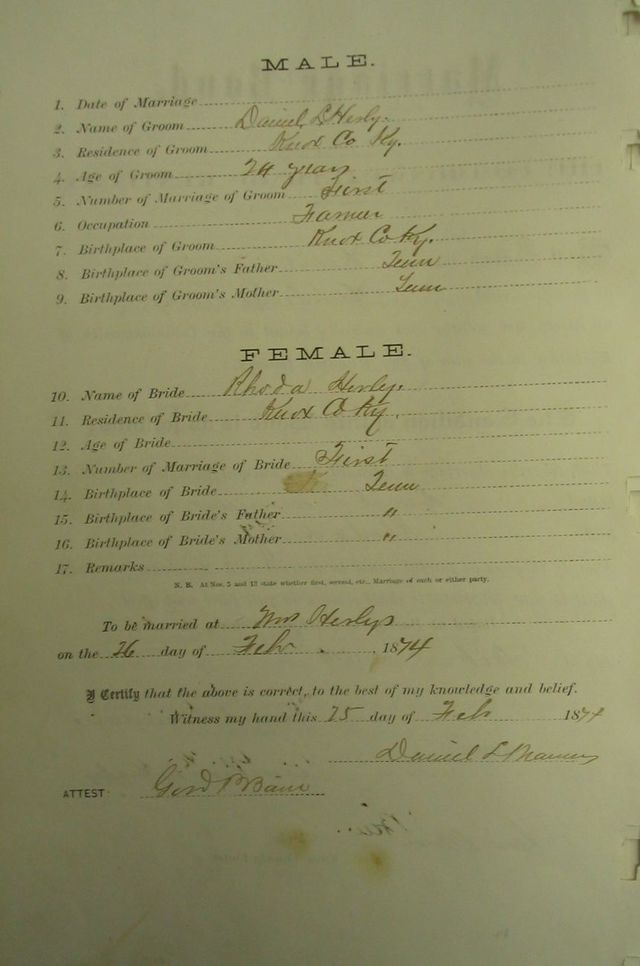 MALE.
1. Date of Marriage
2. Name of Groom Daniel L Herly.
3. Residence of Groom Knox Co Ky.
4. Age of Groom 24 years
5. Number of Marriage of Groom First
6. Occupation Farmer
7. Birthplace of Groom Knox Co Ky.
8. Birthplace of Groom's Father Tenn
9. Birthplace of Groom's Mother Tenn
FEMALE.
10. Name of Bride Rhoda Herly.
11. Residence of Bride Knox Co Ky.
12. Age of Bride
13. Number of Marriage of Bride First
14. Birthplace of Bride Tenn
15. Birthplace of Bride's Father "
16. Birthplace of Bride's Mother "
17. Remarks
N. B. At Nos. 5 and 13 state whether first, second, etc., Marriage of each or either party.
To be married at Wm Herlys
on the 26 day of Feb 1874
I Certify that the above is correct, to the best of my knowledge and belief.
Witness my hand this 25 day of Feb 1874
Daniel L
ATTEST: